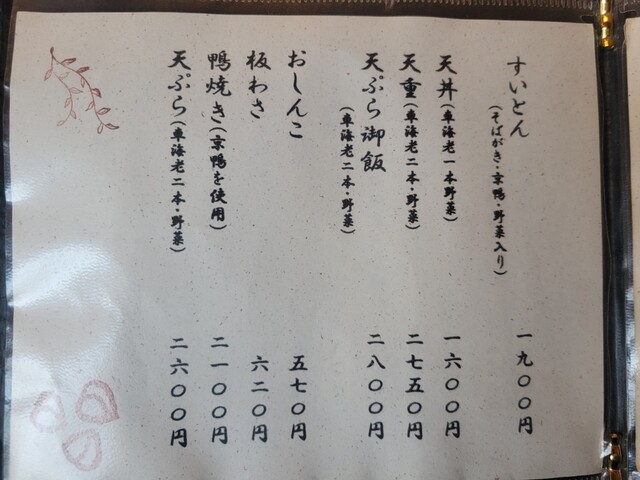 すいとん
(そばがき・京鴨・野菜入り)
一九〇〇円
天丼(車海老一本野菜)
一六〇〇円
天重(車海老二本・野菜)
二七五〇円
天ぷら御飯
(車海老二本・野菜)
二八〇〇円
おしんこ
五七〇円
板わさ
六二〇円
鴨焼き(京鴨を使用)
二一〇〇円
天ぷら(車海老二本・野菜)
二六〇〇円